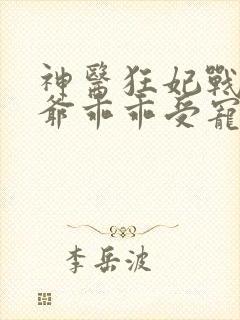 神醫狂妃戰
爺乖乖受寵
李岳波